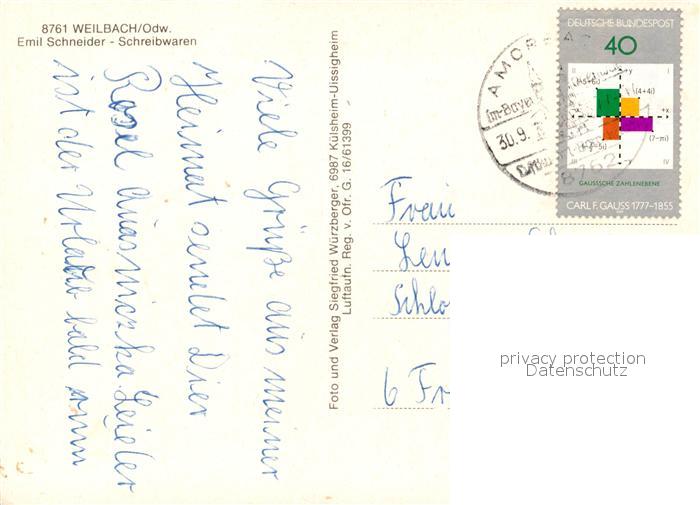 8761 WEILBACH/Odw.
Emil Schneider - Schreibwaren
Viele Grüße aus meiner
Heimat sendet Dier
Rosel Leider
ist der Urlaub bald rum
Foto und Verlag Siegfried Würzberger, 6987 Külsheim-Uissigheim
Luftaufn. Reg. v. Ofr. G. 16/61399
AMORB
30.9.
8762
DEUTSCHE BUNDESPOST
40
(4+4i)
+y
+x
(7-πi)
II
I
III
IV
GAUSSSCHE ZAHLENEBENE
CARL F. GAUSS 1777-1855
Frau
Schlo
6 Fr
privacy protection
Datenschutz